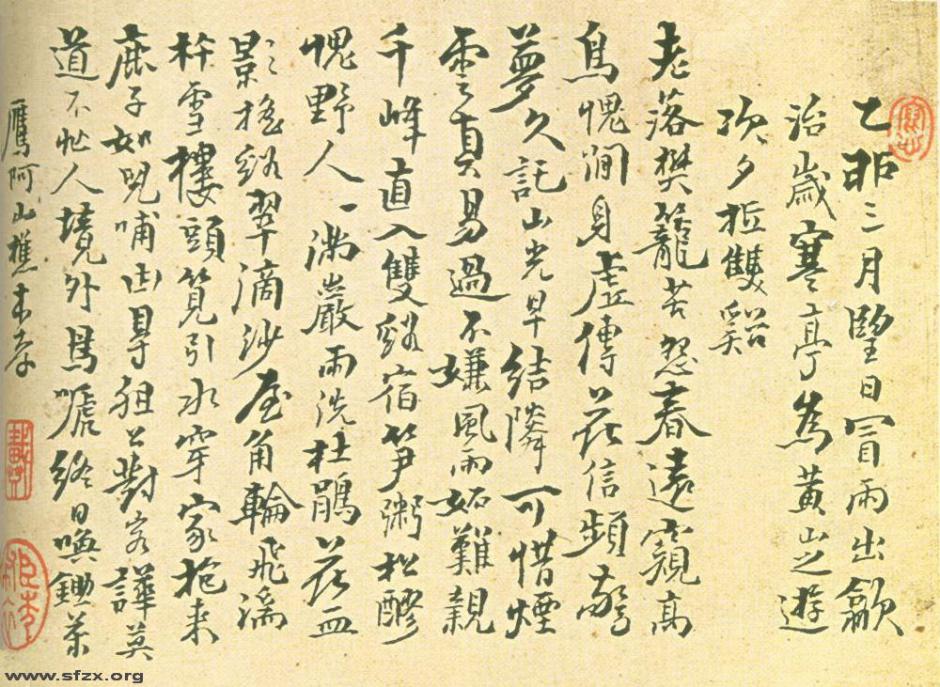 乙卯三月朢日冒雨出歙
治歲寒亭為黃山之遊
次夕抵雙谿
老落樊籠苦怨春遠窺高
鳥愧澗身虛傳花信頻驚
夢久託山光早結隣可惜煙
雲真易過不嫌風雨妬難親
千峰直入雙谿宿笋粥松醪
愧野人一滿巖雨洗杜鵑花血
影搖谿翠滴沙屋角輪飛湍
杵雪樓頭筧引水穿家抱來
鹿子如兒哺出導狙公對客譁莫
道不忙人境外鳥嘑終日喚鋤茶
鷹阿山樵本孝
www.sfzx.org